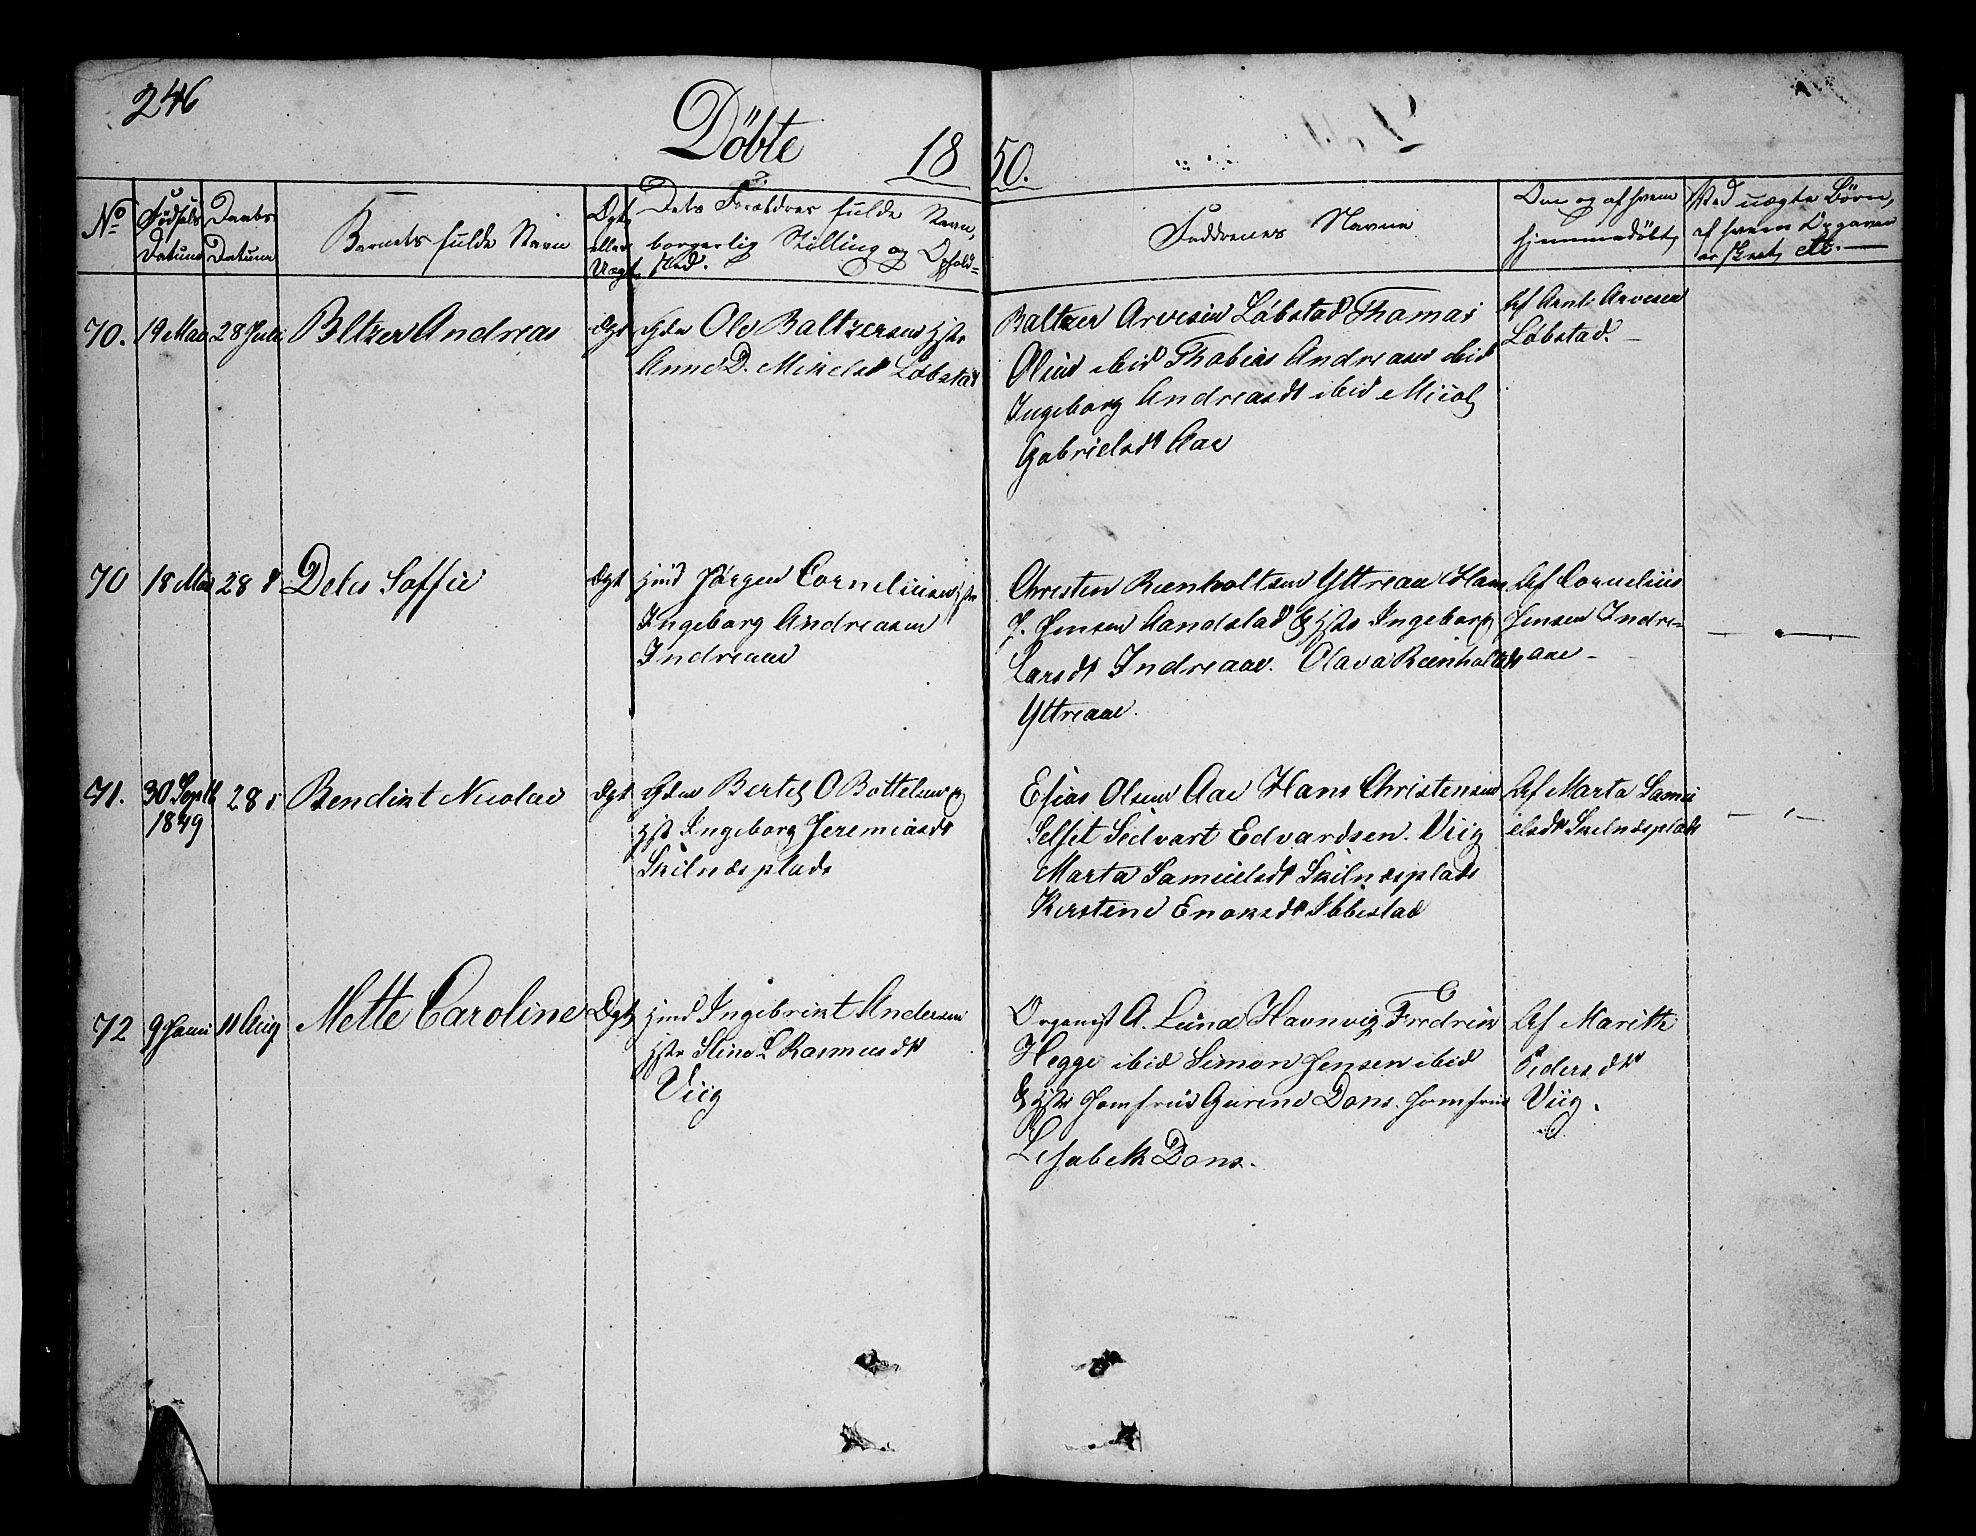 246
Döbte
18 50.
No
Fødsels
Datum
Daabs
Datum
Barnets fulde Navn
Ægt
eller
Uægt.
Dets Forældres fulde Navn,
borgerlig Stilling og Ophold-
sted.
Faddernes Navne
Om og af hvem
hjemmedöbt,
Ved uægte Börn,
af hvem Opgaven
er skeet, etc.
70. 19 Mai 28 Juli Beltzer Andreas Ægt Ole Baltzersen Hst
Anne D. Mikelsd Løbstad
Baltzer Arvesen Løbstad Thomas
Olsen ibid Thobias Andreasen ibid
Ingeborg Andreasdt ibid
Gabrielsdt Aae
Af Arnt Arvesen
Løbstad.
70 18 Mai 28 Deles Soffie Ægt Hmd Jörgen Corneliusen Hst
Ingeborg Andreasen
Indreaae
Christen Reenholtsen Yttreaae Hans
J. Jensen Aandstad & Hst Ingeborg
Larsdt Indreaae. Olava Reenholtsdt
Yttreaae.
Af Cornelius
Jensen Indre-
aae
71. 30 Septb
1849
28 Bendikt Nicolai Ægt Bertel O Bottelsen &
Hst Ingeborg Jeremiasdt
Skilnæsplads
Esias Olsen Aae Hans Christensen
Selset Sedvart Edvardsen. Viig
Marta Samuelsdt Skilnæsplads
Kirstine Enoksdt Ibbestad
Af Marta Samu
elsdt Skilnæsplads
72 9 Juni 11 Aug Mette Caroline Ægt Hmd Ingebrikt Andersen
Hst Stine L Rasmusdt
Viig
Organist A. Lund Havnvig Fredrik
Hegge ibid Simon Jensen ibid
& Hst Jomfrue Gurine Dons. Jomfrue
Lisabeth Dons.
Af Marith
Pedersdt
Viig.